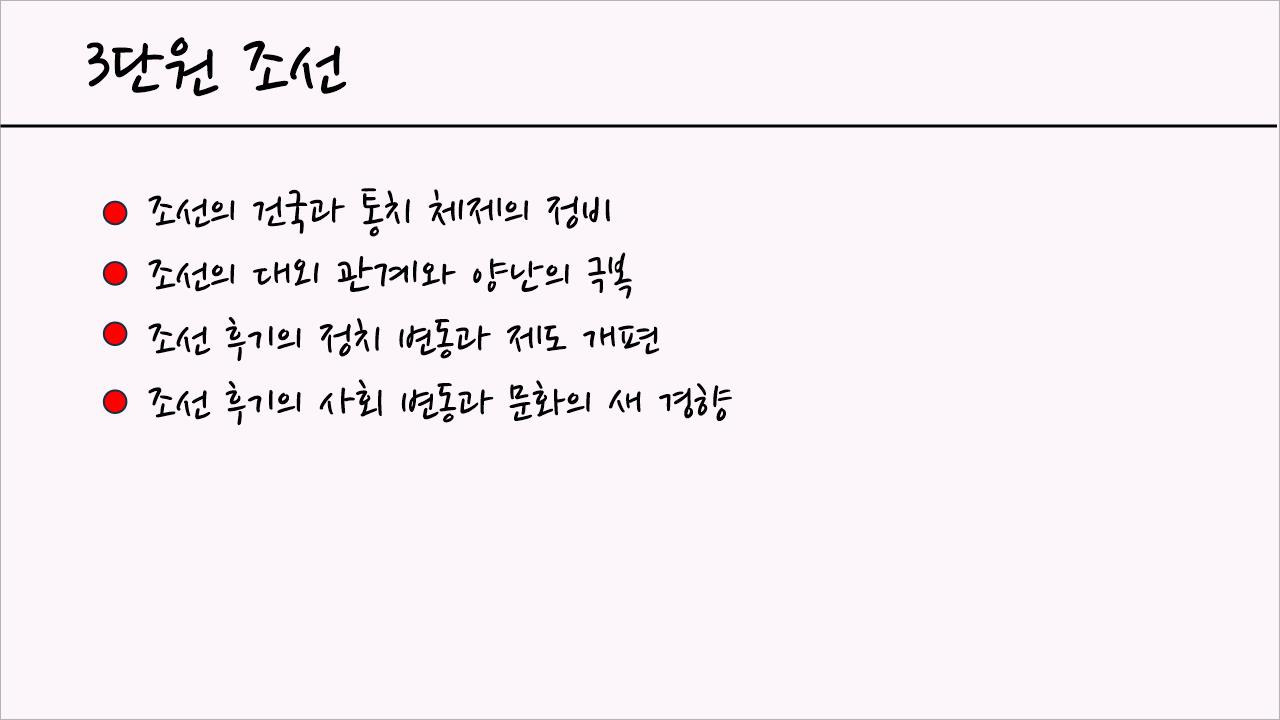 3단원 조선
조선의 건국과 통치 체제의 정비
조선의 대외 관계와 양난의 극복
조선 후기의 정치 변동과 제도 개편
조선 후기의 사회 변동과 문화의 새 경향